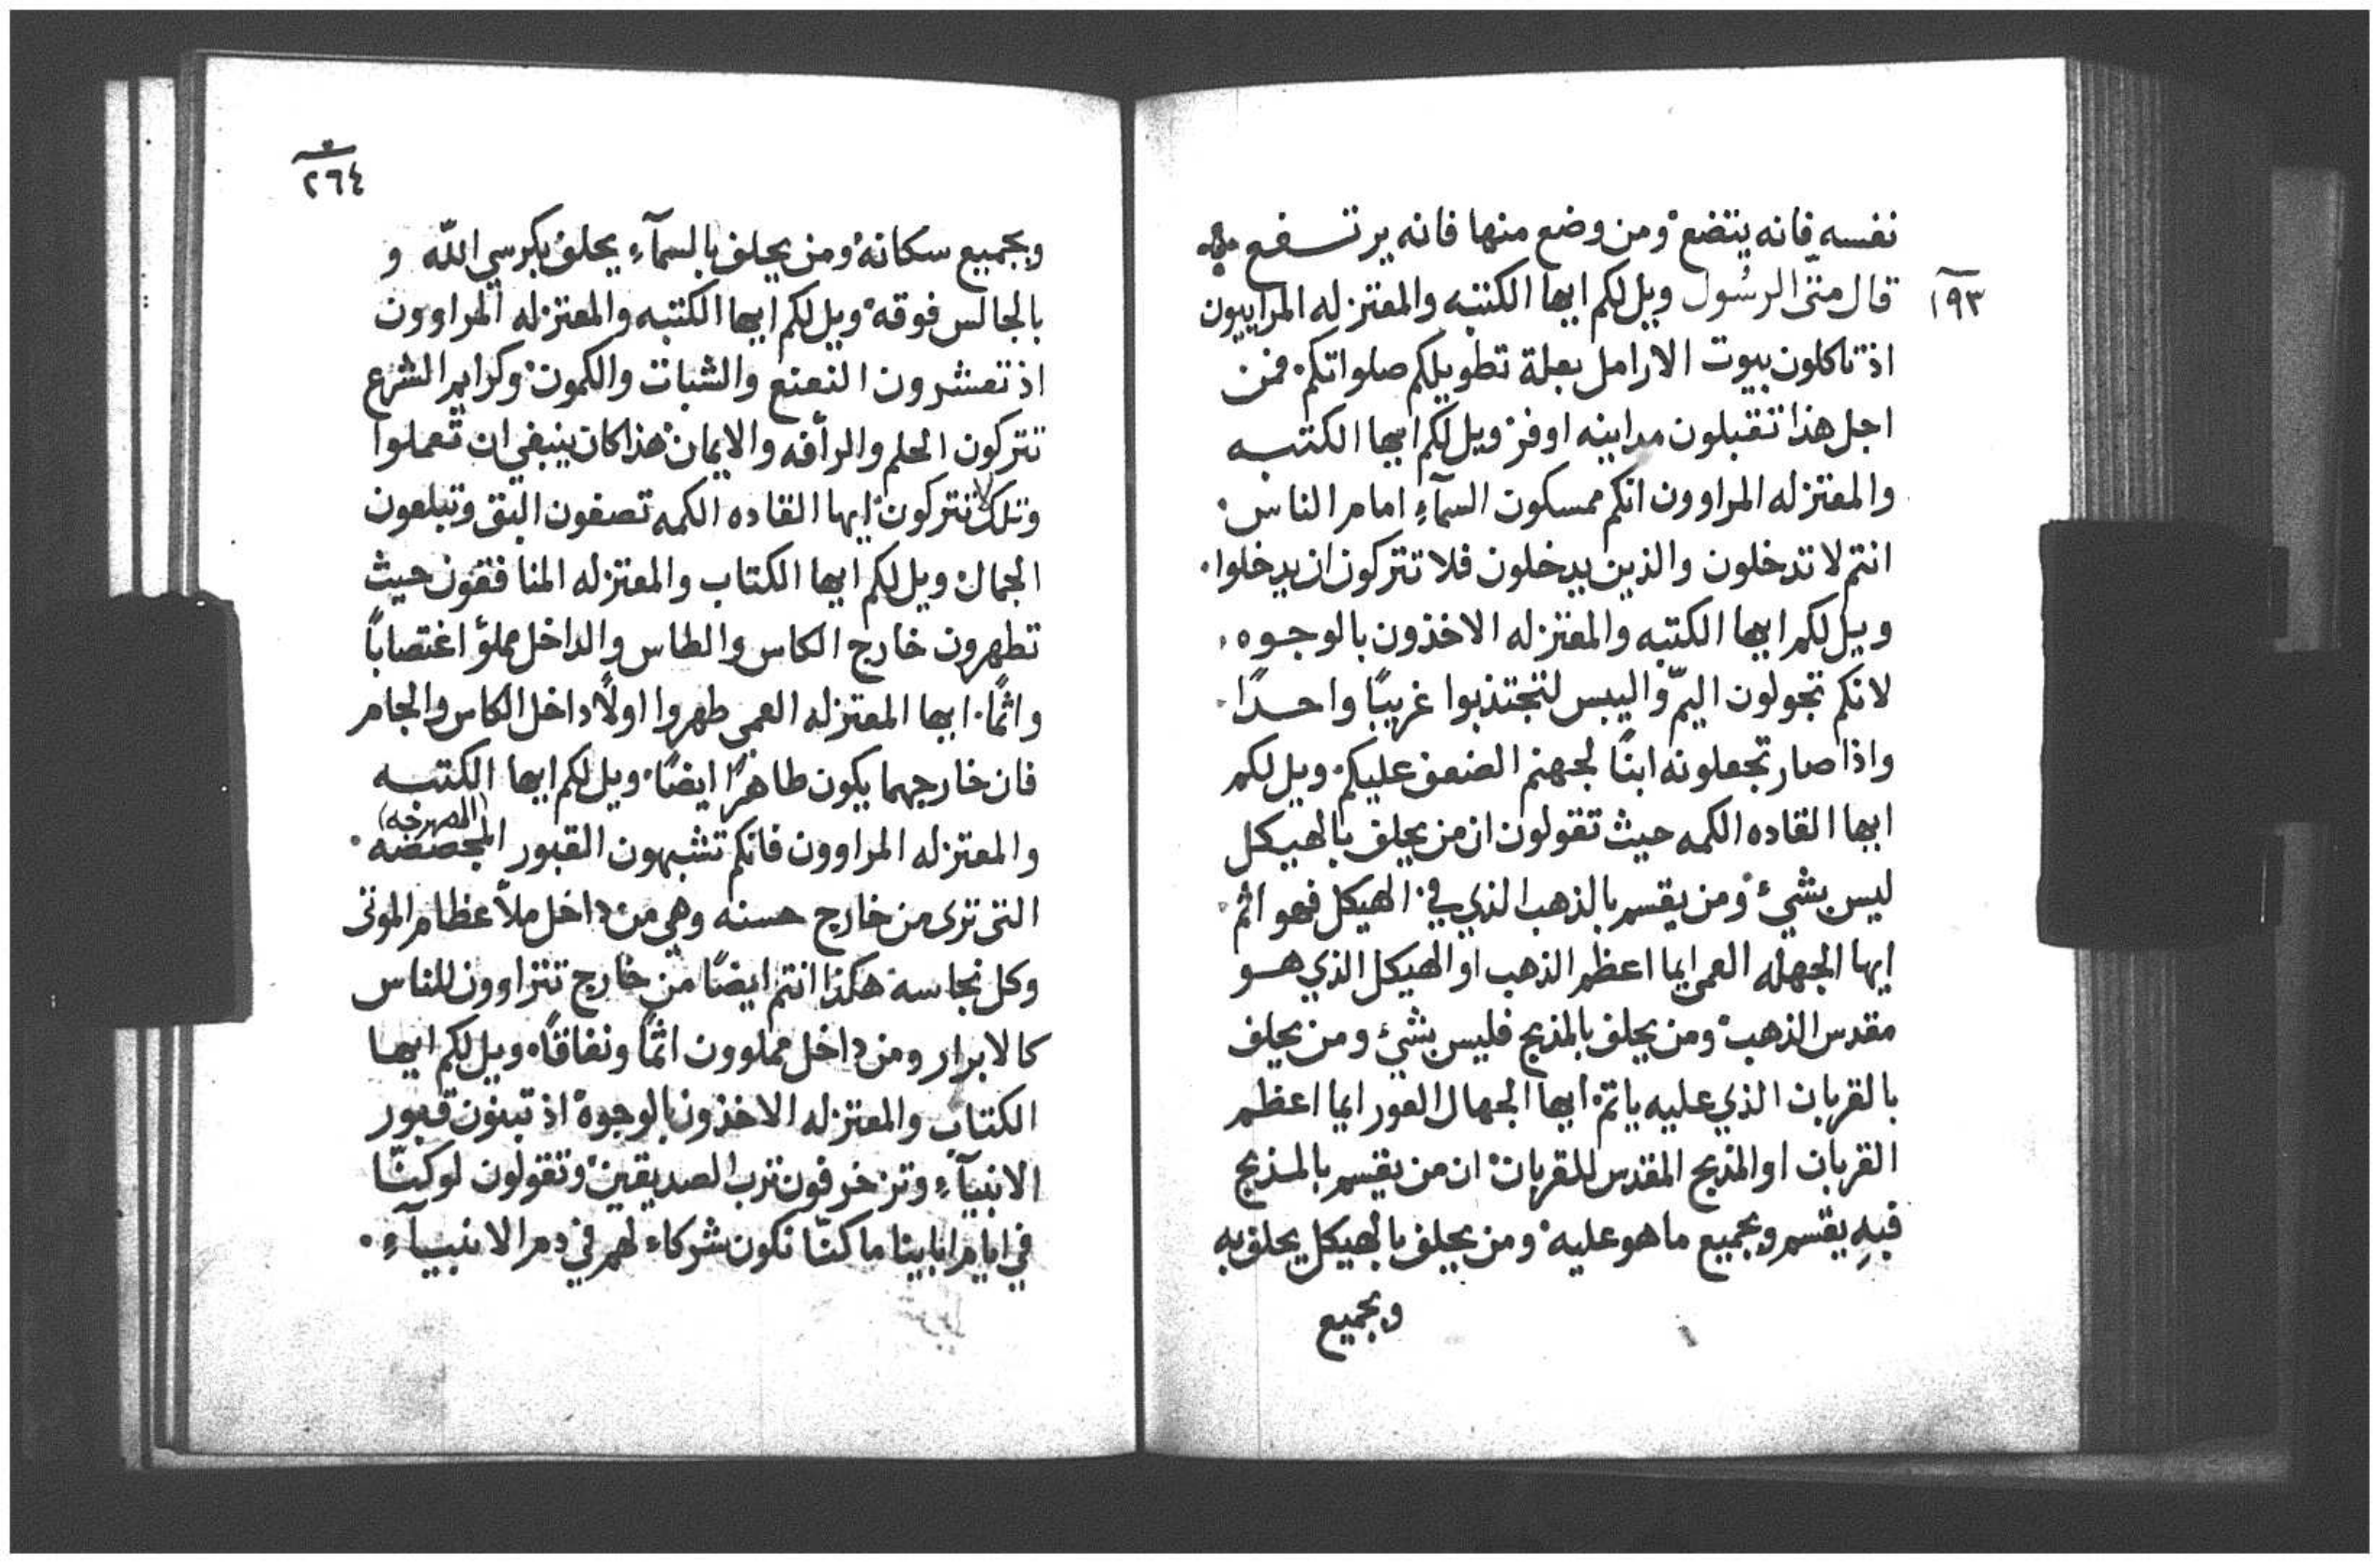 نفسه فانه يتضع ومن وضع منها فانه يرتفع
١٩٣
قال متى الرسول ويل لكم ايها الكتبه والمعتزله المراييون
اذ تاكلون بيوت الارامل بعلة تطويلكم صلواتكم فمن
اجل هذا تتقبلون مداينه اوفر ويل لكم ايها الكتبه
والمعتزله المراوون انكم ممسكون السمآءِ امام الناس
انتم لا تدخلون والذين يدخلون فلا تتركون ان يدخلوا
ويل لكم ايها الكتبه والمعتزله الاخذون بالوجوه
لانكم تجولون اليمّ واليبس لتجتذبوا غريبًا واحدًا
واذا صار تجعلونه ابنًا لجهنم الضعف عليكم ويل لكم
ايها القاده الكمه حيث تقولون ان من يحلف بالهيكل
ليس بشيء ومن يقسم بالذهب الذي في الهيكل فهو اثم
ايها الجهله العمي ايما اعظم الذهب او الهيكل الذي هو
مقدس الذهب ومن يحلف بالمذبح فليس بشيء ومن يحلف
بالقربان الذي عليه ياثم ايها الجهال العور ايما اعظم
القربان او المذبح المقدس للقربان ان من يقسم بالمذبح
فبهِ يقسم وبجميع ما هو عليه ومن يحلف بالهيكل يحلف به
وبجميع
٢٦٤
وبجميع سكانه ومن يحلف بالسمآءِ يحلف بكرسي اللّه و
بالجالس فوقه ويل لكم ايها الكتبه والمعتزله المراوون
اذ تعشرون النعنع والشبات والكمون وكرايم الشرع
تتركون الحلم والرأفه والايمان هذا كان ينبغي ان تعملوا
وتلك لا تتركون ايها القاده الكمه تصفون البق وتبلعون
الجمال ويل لكم ايها الكتاب والمعتزله المنافقون حيث
تطهرون خارج الكاس والطاس والداخل مملؤ اغتصابًا
واثمًا ايها المعتزله العمي طهروا اولًا داخل الكاس والجام
فان خارجهما يكون طاهرًا ايضًا ويل لكم ايها الكتبه
والمعتزله المراوون فانكم تشبهون القبور المجصصه
(المصهرجه)
التي ترى من خارج حسنه وهي من داخل ملأ عظام الموتى
وكل نجاسة هكذا انتم ايضًا من خارج تتراوون للناس
كالابرار ومن داخل مملوون اثمًا ونفاقًا ويل لكم ايها
الكتاب والمعتزله الاخذون بالوجوه اذ تبنون قبور
الانبيآءِ وتزخرفون ترب الصديقين وتقولون لو كنّا
في ايام ابايينا ما كنّا نكون شركاء لهم في دم الانبيآءِ